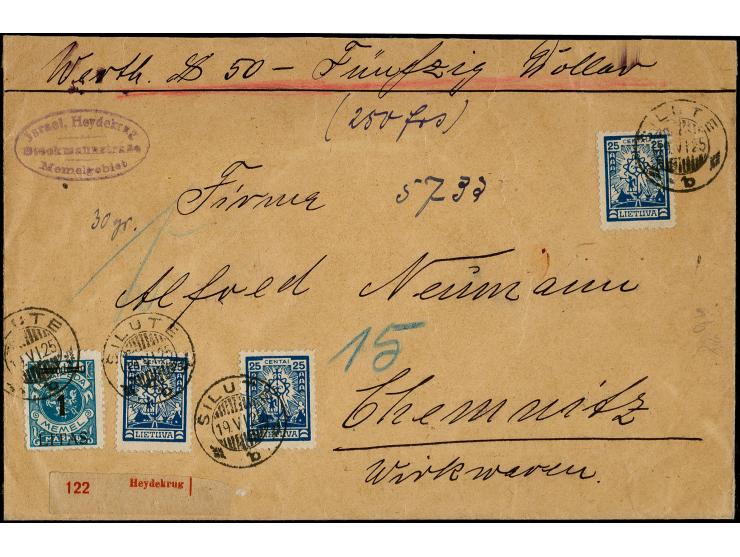 Werth. $ 50 — Fünfzig Dollar
(250 frs)
Israel, Heydekrug
Stockmannstrasse
Memelgebiet
SILUTE
VI 25
b
25 CENTAI 25
LIETUVA
30 gr.
Firma
Alfred Neumann
15
Chemnitz
Wirkwaren.
SILUTE
VI 25
1
MEMEL
SILUTE
25 25
LIETUVA
25 CENTAI 25
LIETUVA
SILUTE
19. VI
b
122 Heydekrug